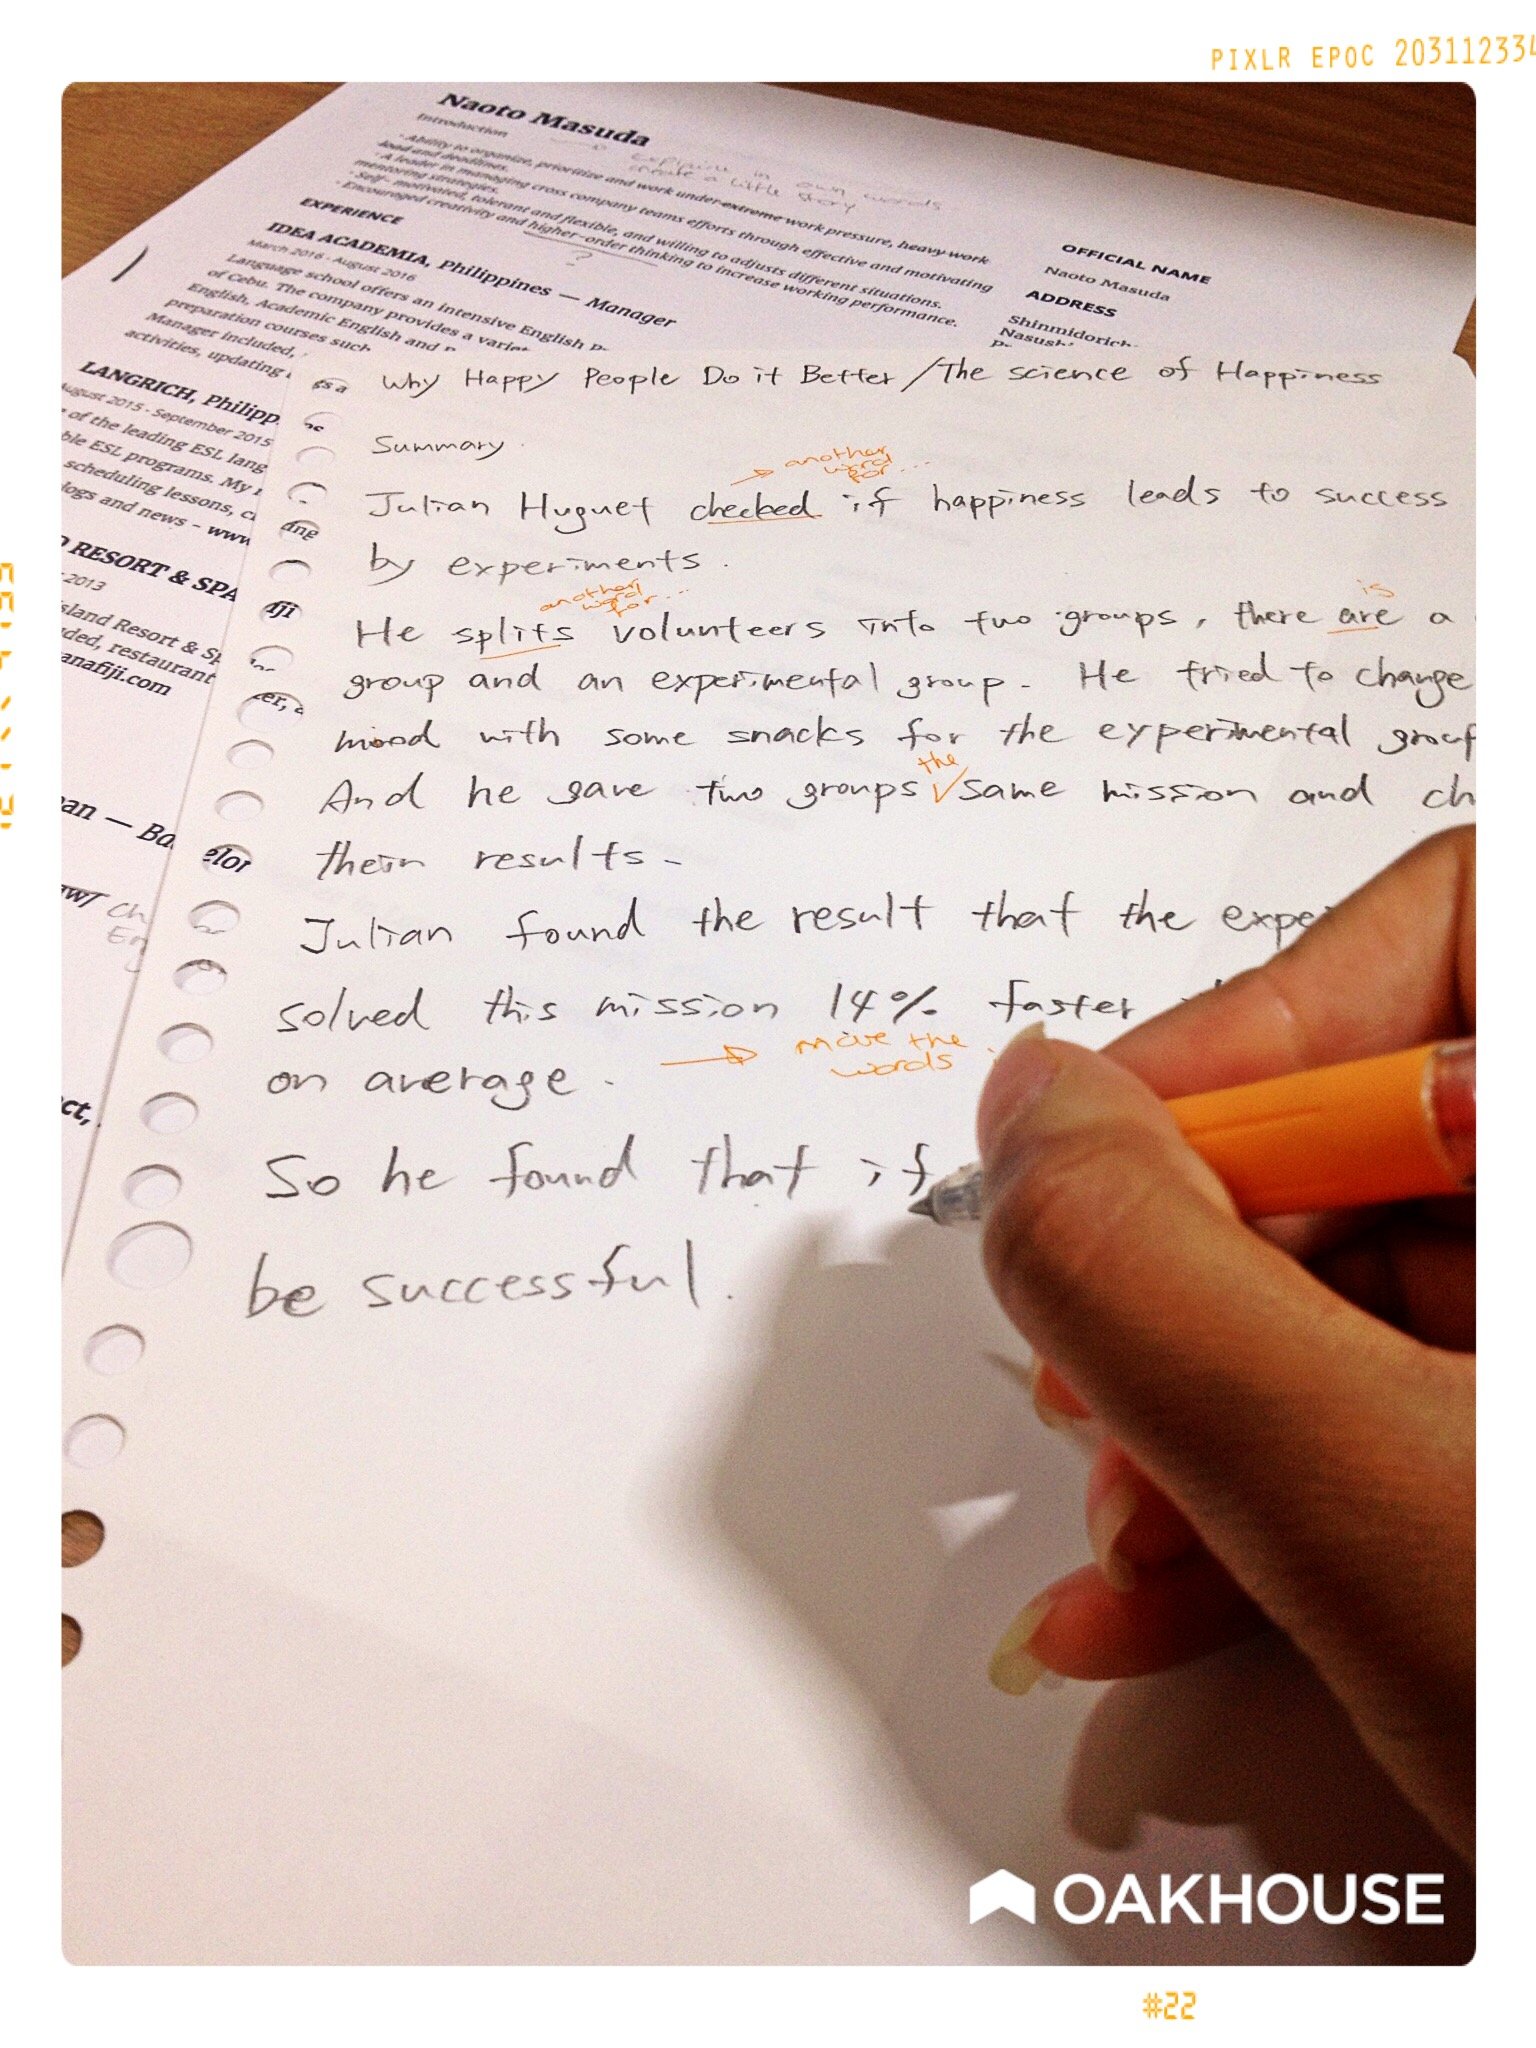 PIXLR EPOC 203112334
Naoto Masuda
Introduction
explain in own words
create a little story
- Ability to organize, prioritize and work under extreme work pressure, heavy work
load and deadlines.
- A leader in managing cross company teams efforts through effective and motivating
mentoring strategies.
- Self-motivated, tolerant and flexible, and willing to adjusts different situations.
- Encouraged creativity and higher-order thinking to increase working performance.
?
EXPERIENCE
IDEA ACADEMIA, Philippines — Manager
March 2016 - August 2016
Language school offers an intensive English
of Cebu. The company provides a
English, Academic English and
preparation courses such
Manager included,
activities, updating
OFFICIAL NAME
Naoto Masuda
ADDRESS
Shinmidorich
Nasush
LANGRICH, Philipp
August 2015 - September 2015
of the leading ESL lang
ble ESL programs. My
scheduling lessons,
logs and news - www
RESORT & SPA
2013
sland Resort & Sp
ded, restaurant
anafiji.com
an — Ba elor
ct,
Why Happy People Do it Better / The science of Happiness
Summary
another
word
for...
Julian Huguet checked if happiness leads to success
by experiments.
another
word
for...
is
He splits volunteers into two groups, there are a
group and an experimental group. He tried to change
mood with some snacks for the experimental group
the
And he gave two groups same mission and ch
their results.
Julian found the result that the expe
solved this mission 14% faster
on average.
move the
words
So he found that if
be successful.
OAKHOUSE
#22